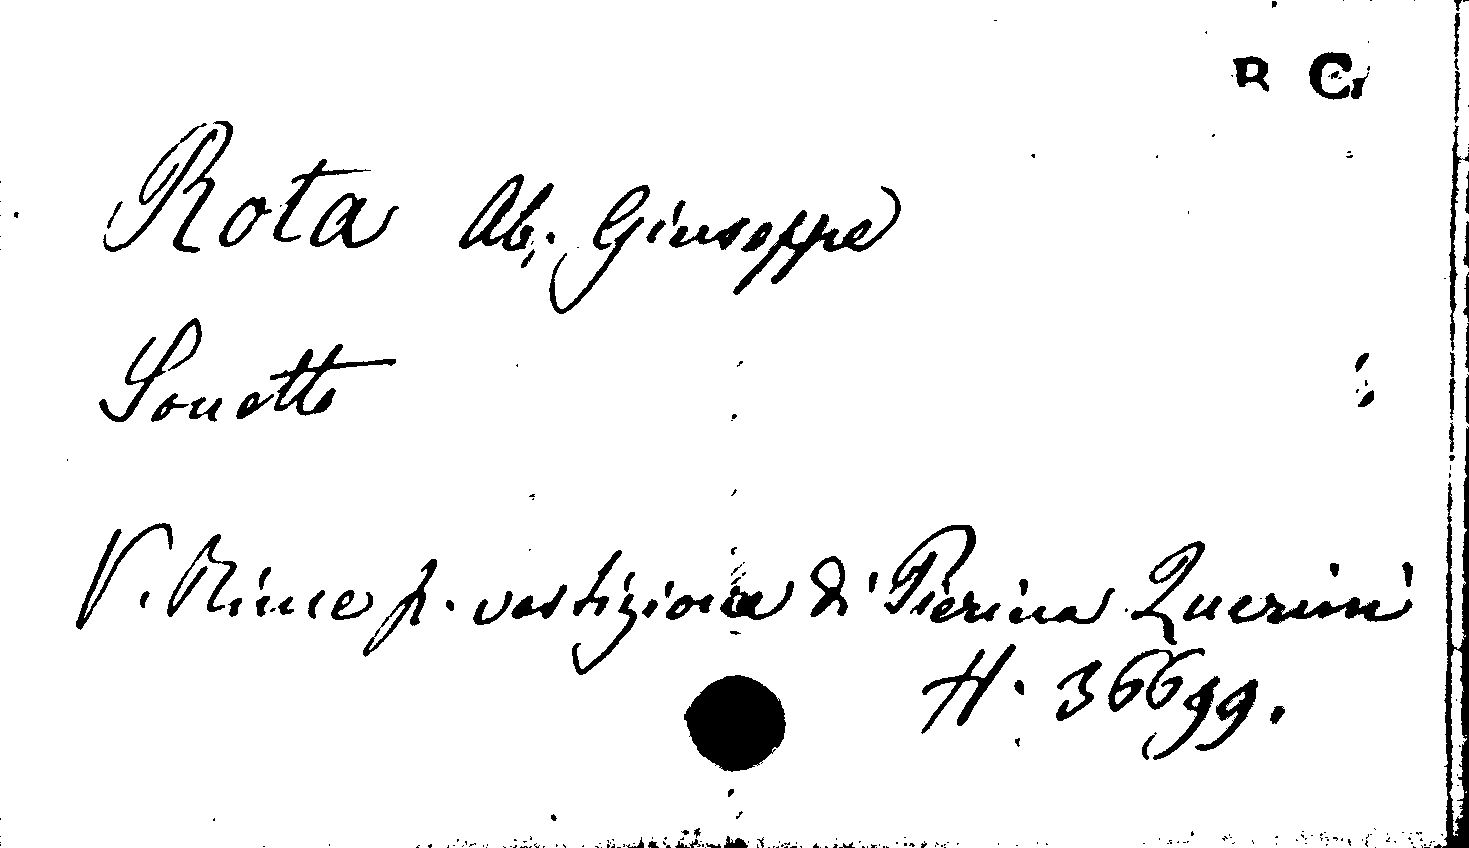 B C.
Rota Ab. Giuseppe
Sonetto
V. Rime p. vestizione di Pierina Querini
H. 36699.